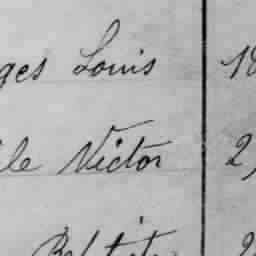 ges Louis 18
le Victor 2,
Baptiste 2